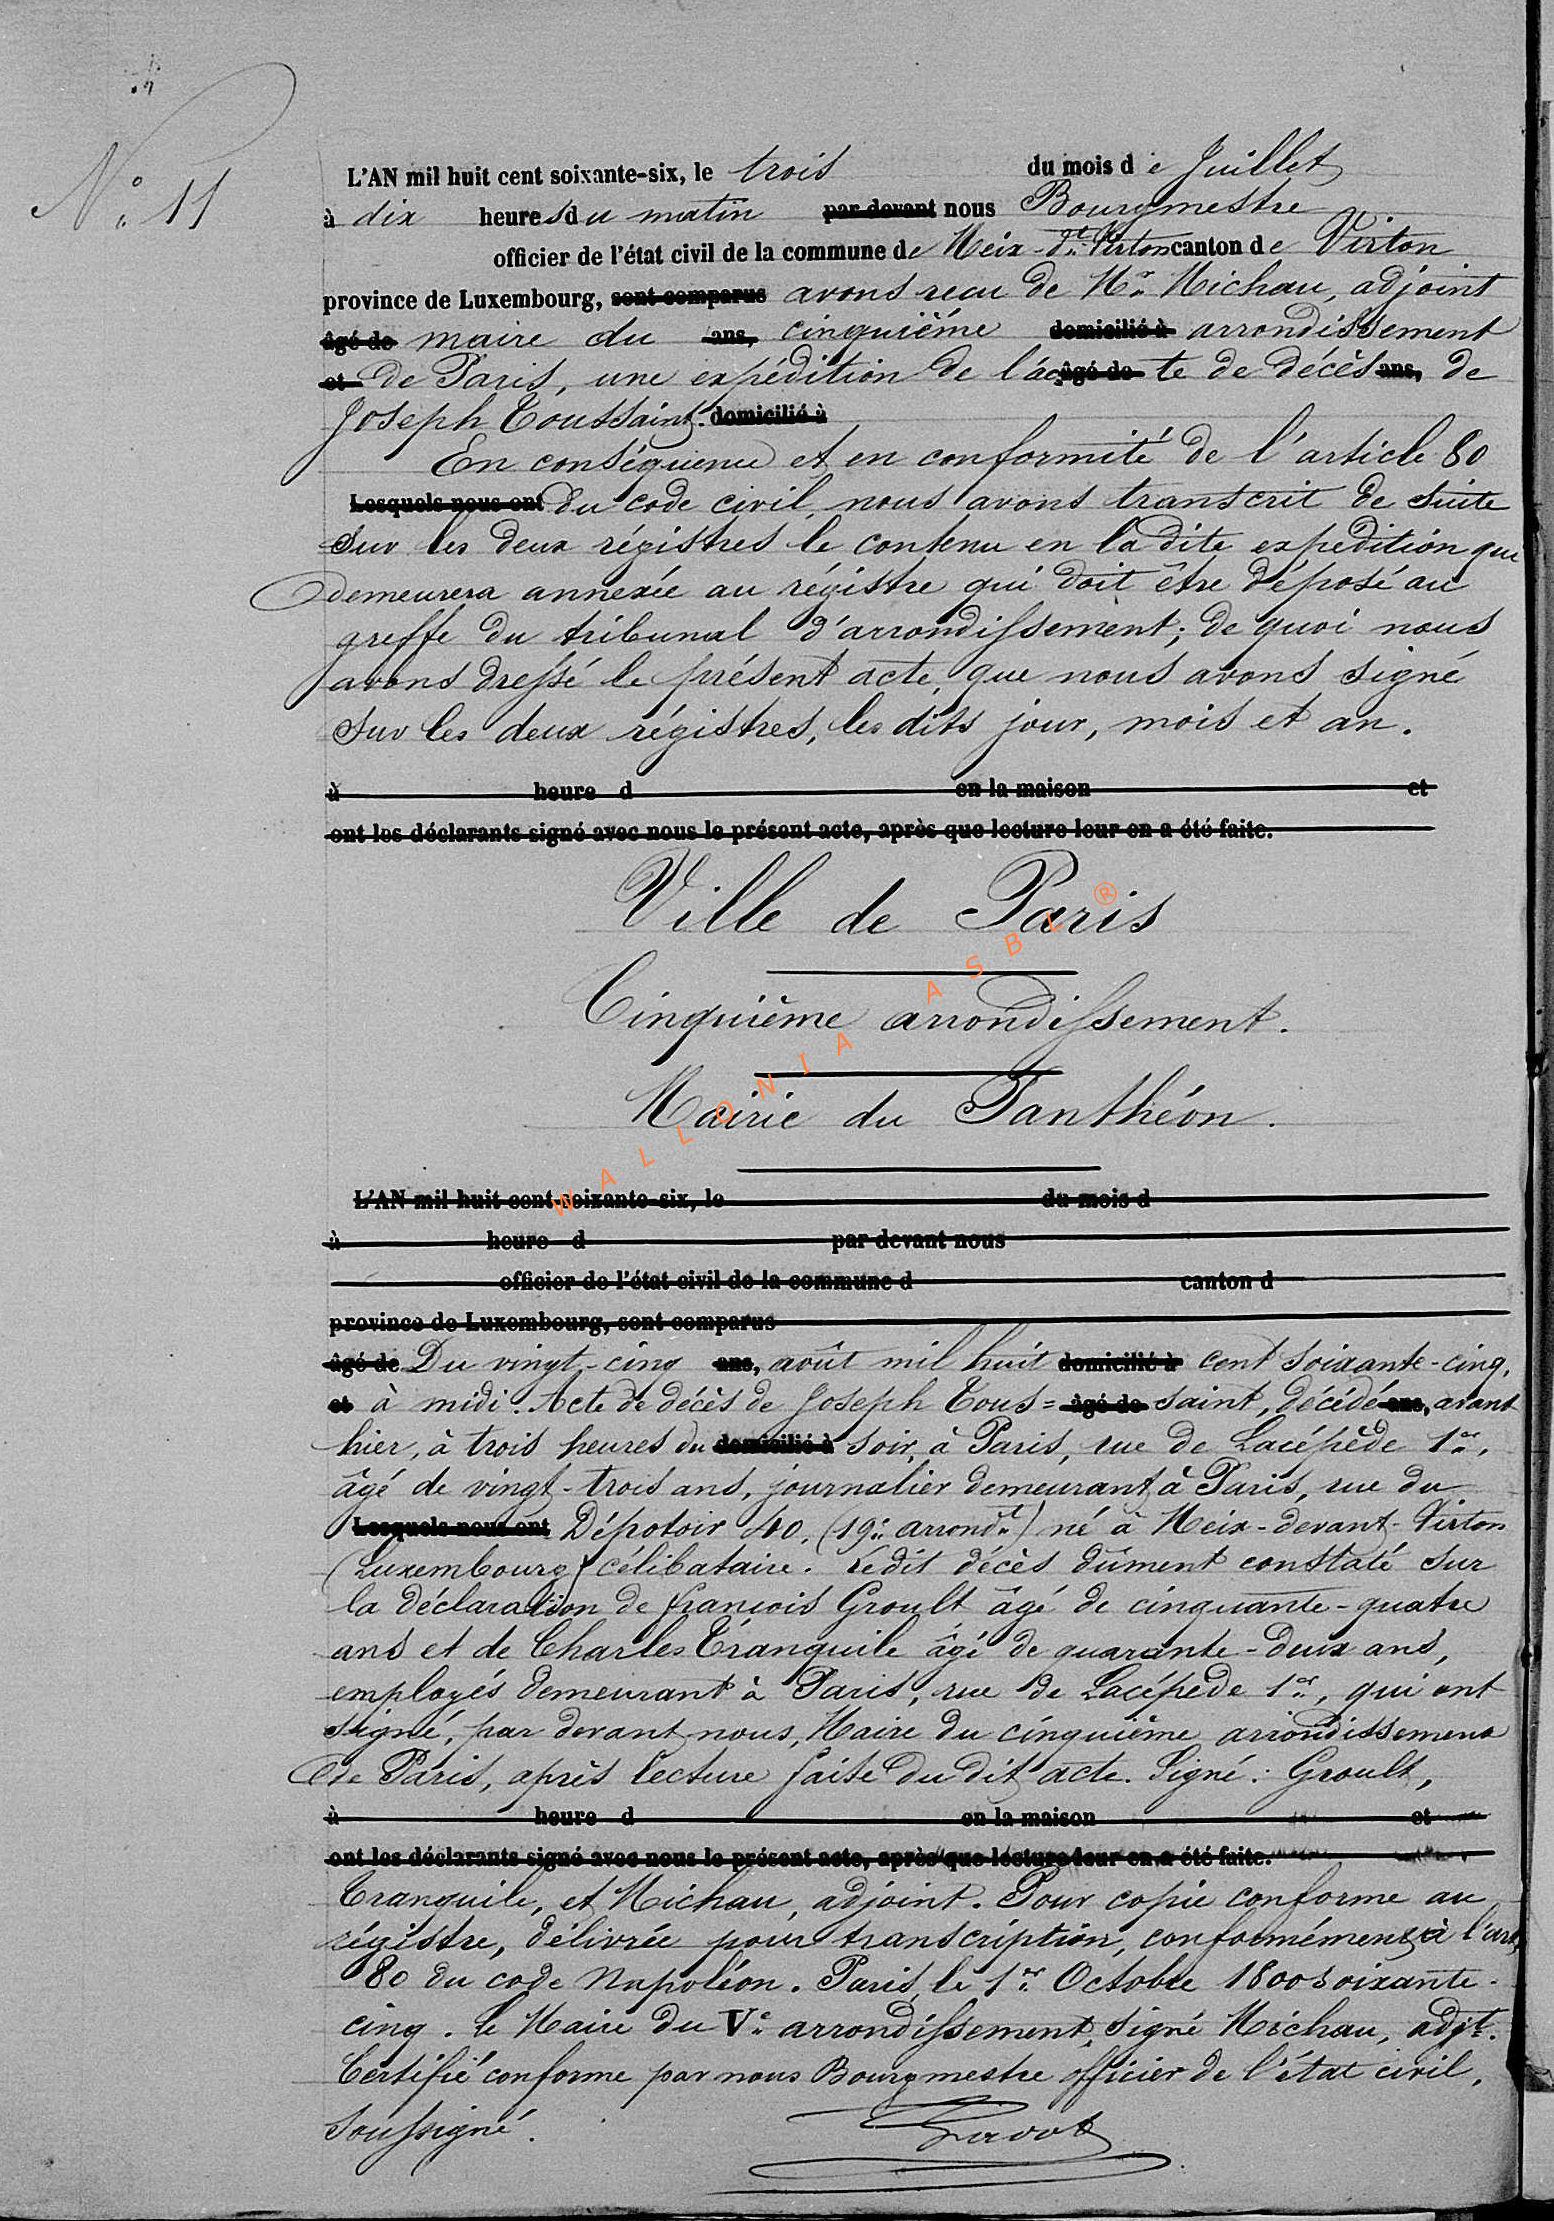 N° 11
L'AN mil huit cent soixante-six, le trois du mois de Juillet
à dix heures du matin par devant nous Bourgmestre
officier de l'état civil de la commune de Meix-dt-Virton canton de Virton
province de Luxembourg, sont comparus avons recu de Mr Michau, adjoint
âgé de maire du ans, cinquième domicilié à arrondissement
et de Paris, une expédition de l'ac âgé de te de décès ans, de
Joseph Toussaint. domicilié à
En conséquence et en conformité de l'article 80
Lesquels nous ont du code civil, nous avons transcrit de suite
sur les deux régistres le contenu en la dite expedition qui
demeurera annexée au régistre qui doit être déposé au
greffe du tribunal d'arrondissement; de quoi nous
avons dressé le présent acte, que nous avons signé
sur les deux régistres, les dits jour, mois et an.
à heure d en la maison et
ont les déclarants signé avec nous le présent acte, après que lecture leur en a été faite.
Ville de Paris
Cinquième arrondissement.
Mairie du Panthéon.
WALLONIA ASBL ®
L'AN mil huit cent soixante-six, le du mois d
à heure d par devant nous
officier de l'état civil de la commune d canton d
province de Luxembourg, sont comparus
âgé de Du vingt-cinq ans, août mil huit domicilié à cent soixante-cinq,
et à midi. Acte de décès de Joseph Tous= âgé de saint, décédé ans, avant
hier, à trois heures du domicilié à soir, à Paris, rue de Lacépède 1er,
âgé de vingt-trois ans, journalier demeurant à Paris, rue du
Lesquels nous ont Dépotoir 40, (19e arrondt) né à Meix-devant-Virton
(Luxembourg) célibataire. Ledit décès dûment constaté sur
la déclaration de françois Groult âgé de cinquante-quatre
ans et de Charles Tranquile âgé de quarante-deux ans,
employés demeurant à Paris, rue de Lacépède 1er, qui ont
signé, par devant nous, Maire du cinquième arrondissement
de Paris, après lecture faite du dit acte. Signé: Groult,
à heure d en la maison et
ont les déclarants signé avec nous le présent acte, après que lecture leur en a été faite.
Tranquile, et Michau, adjoint. Pour copie conforme au
régistre, délivrée pour transcription, conformément à l'art
80 du code Napoléon. Paris, le 1er Octobre 1800 soixante-
cinq. Le Maire du Ve arrondissement, signé Michau, adjt.
Certifié conforme par nous Bourgmestre officier de l'état civil,
soussigné.